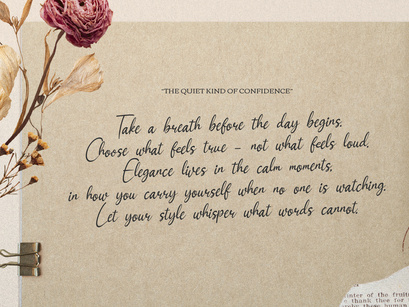 "THE QUIET KIND OF CONFIDENCE"
Take a breath before the day begins.
Choose what feels true – not what feels loud.
Elegance lives in the calm moments,
in how you carry yourself when no one is watching.
Let your style whisper what words cannot.
inter of the fruit
thank thee for
them human